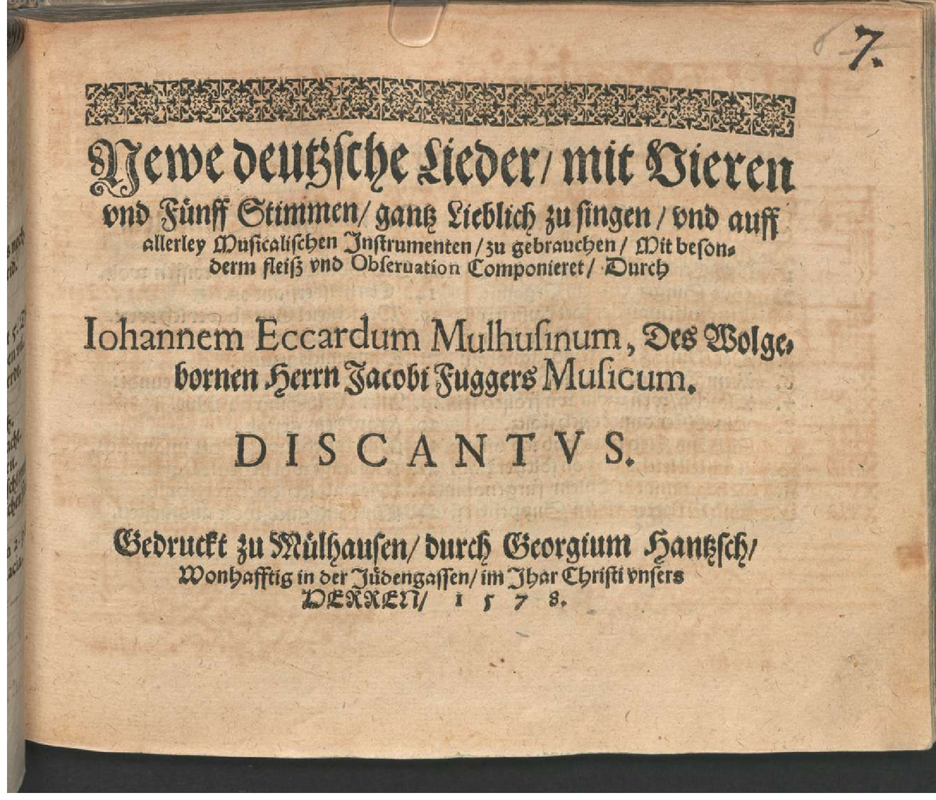 7.
Newe deutzsche Lieder/ mit Vieren
vnd Fünff Stimmen/ gantz Lieblich zu singen/ vnd auff
allerley Musicalischen Instrumenten/ zu gebrauchen/ Mit beson-
derm fleiß vnd Obseruation Componieret/ Durch
Iohannem Eccardum Mulhusinum, Des Wolge-
bornen Herrn Jacobi Fuggers Musicum.
DISCANTVS.
Gedruckt zu Mülhausen/ durch Georgium Hantzsch/
Wonhafftig in der Jüdengassen/ im Jhar Christi vnsers
HERREN/ 1578.